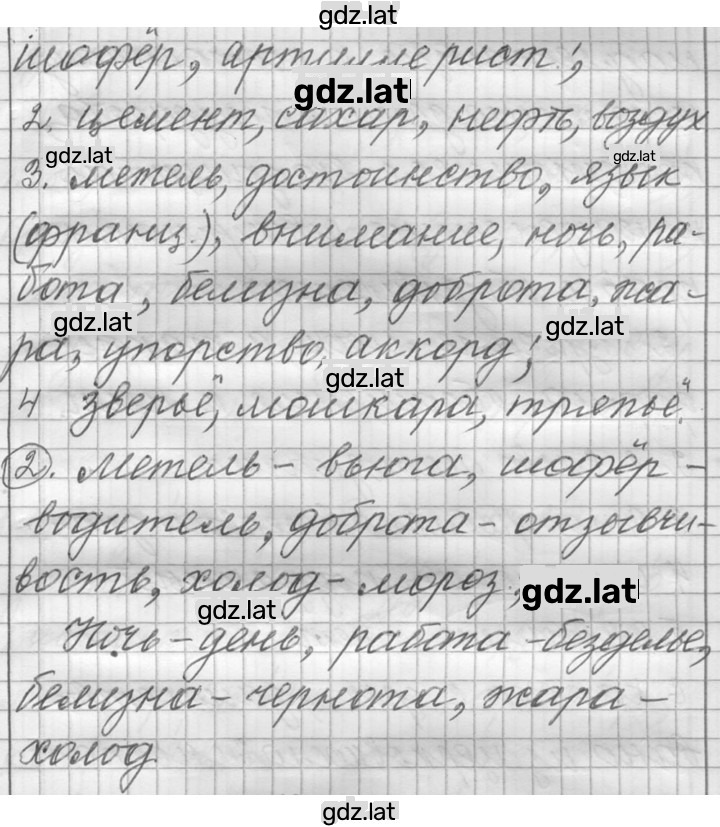 gdz.lat
шофёр, артиллерист;
gdz.lat
2. цемент, сахар, нефть, воздух
gdz.lat gdz.lat
3. метель, достоинство, язык
(франц.), внимание, ночь, ра-
бота, белизна, доброта, жа-
gdz.lat gdz.lat
ра, упорство, аккорд;
gdz.lat
4 зверьё, мошкара, тряпьё.
2. Метель - вьюга, шофёр -
водитель, доброта - отзывчи-
вость, холод - мороз,
gdz.lat
gdz.lat
Ночь - день, работа - безделье,
белизна - чернота, жара -
холод
gdz.lat